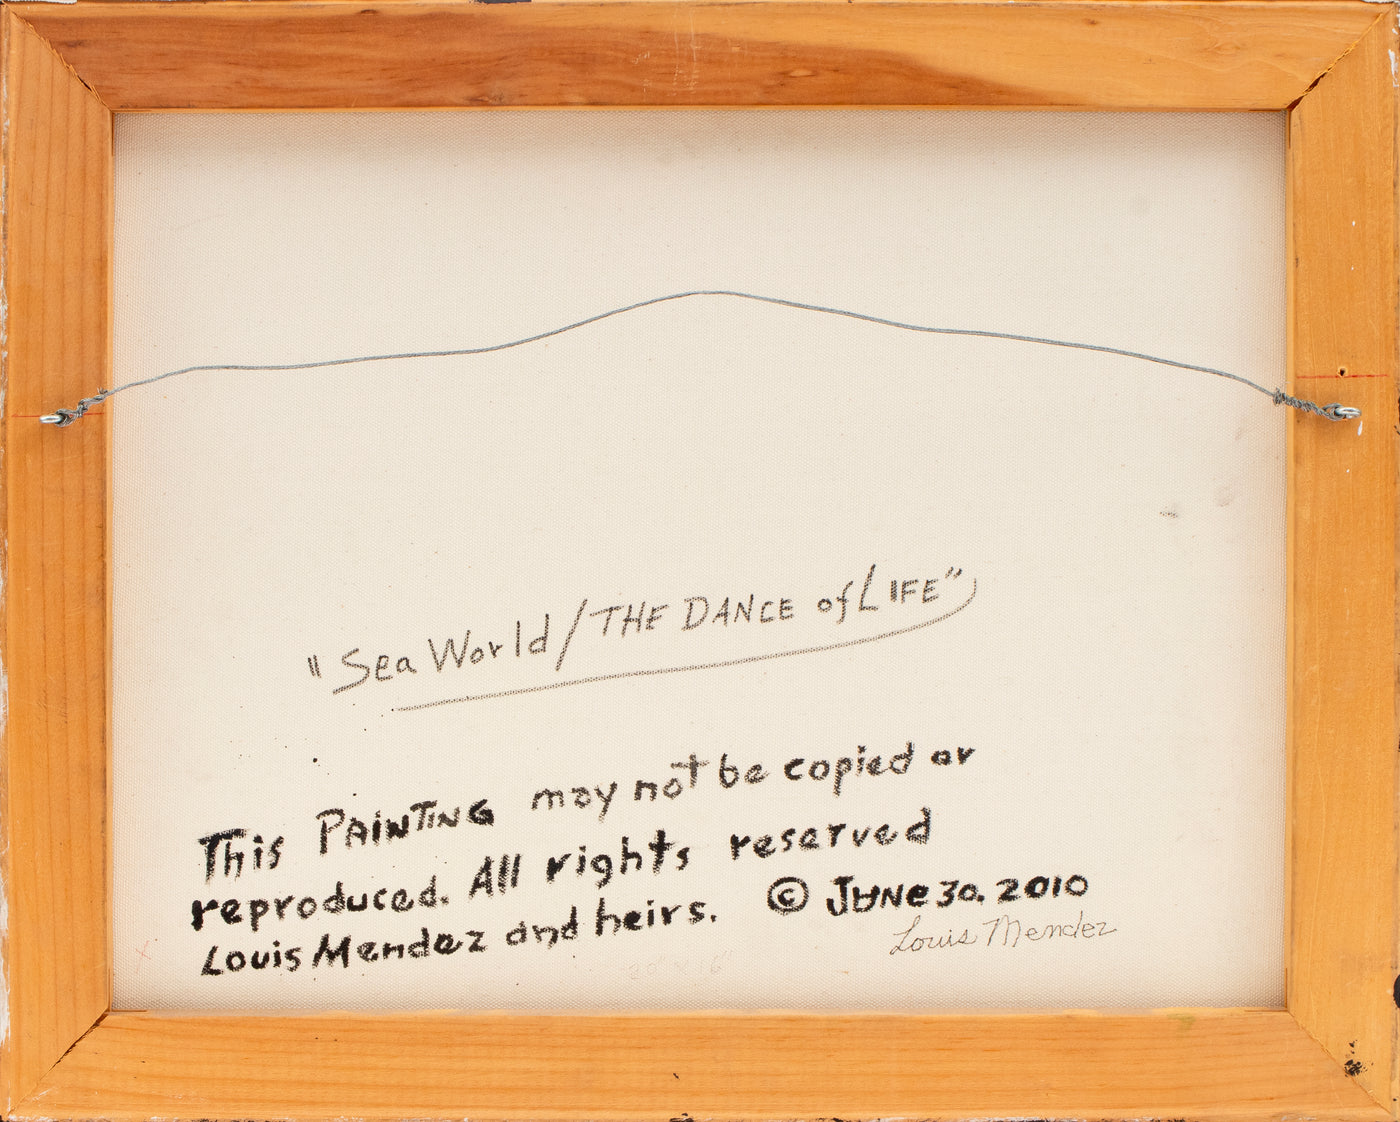 "Sea World/THE DANCE of LIFE"
This PAiNTiNG may not be copied or
reproduced. All rights reserved
Louis Mendez and heirs. © JUNe 30, 2010
Louis Mendez